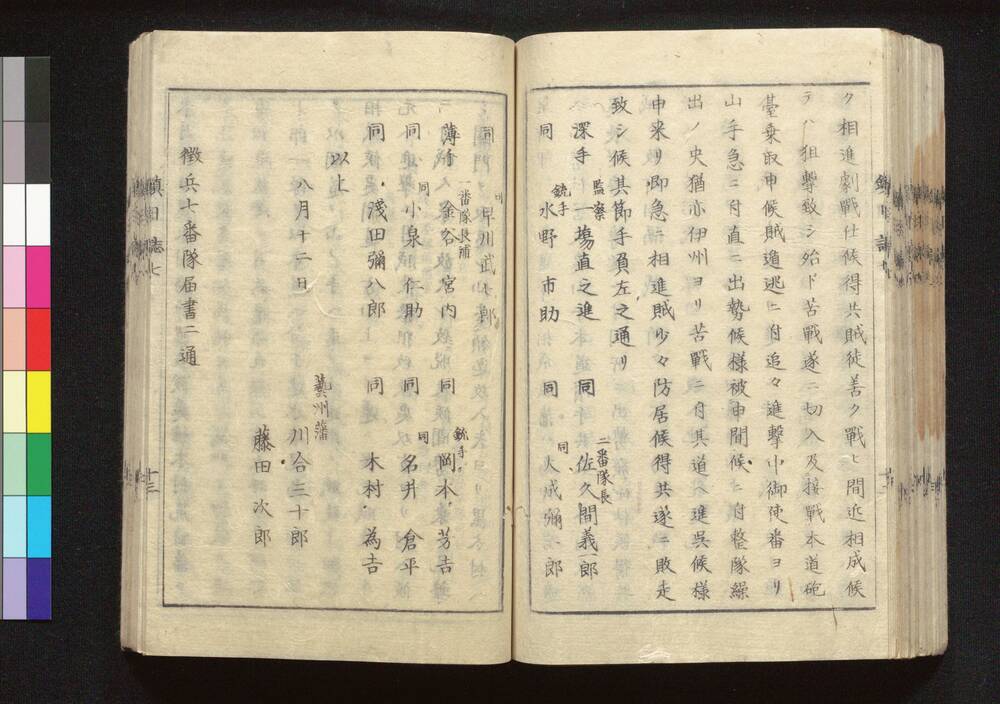 ク相進劇戰仕候得共賊徒善ク戰ヒ間近相成候
テハ狙擊致シ殆ド苦戰遂ニ切入及接戰本道砲
臺乗取申候賊遁逃ニ付追々進擊中御使番ヨリ
山手急ニ付直ニ出勢候様被申聞候ニ付整隊繰
出ノ央猶亦伊州ヨリ苦戰ニ付其道ヘ進呉候様
申来リ即急ニ相進賊少々防居候得共遂ニ敗走
致シ候其節手負左之通リ
深手 監察 一場直之進 同 二番隊長 佐久間義一郎
同 銃手 水野市助 同 同 大成彌一郎
同 同 早川武七郎
薄手 一番隊長補 金谷宮内 同 銃手 岡本芳吉
同 同 小泉仁助 同 同 名井倉平
同 淺田彌八郎 同 木村為吉
以上
八月十二日
藝州藩
川合三十郎
藤田次郎
徵兵七番隊届書二通
慎日誌七
十三